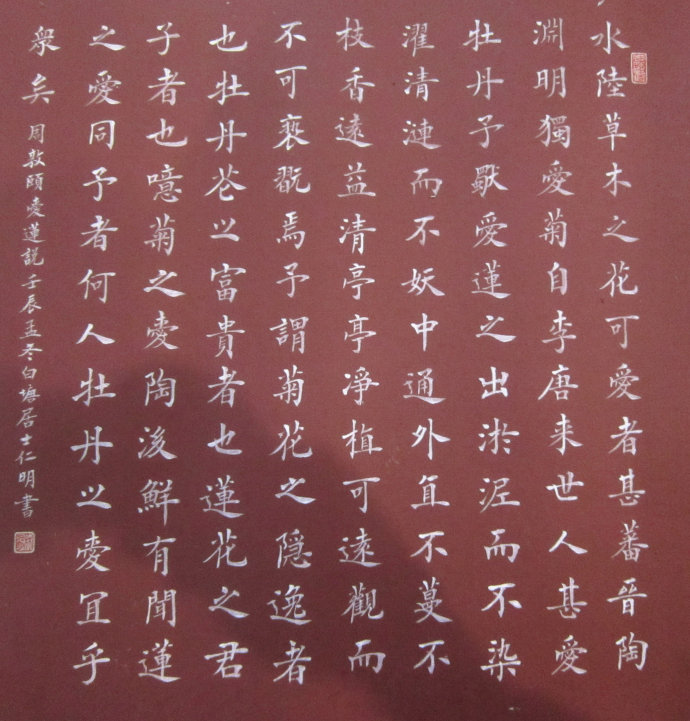 水陸草木之花可愛者甚蕃晉陶
淵明獨愛菊自李唐来世人甚愛
牡丹予獸愛蓮之出淤泥而不染
濯清漣而不妖中通外直不蔓不
枝香遠益清亭亭凈植可遠觀而
不可褻翫焉予謂菊花之隐逸者
也牡丹花之富貴者也蓮花之君
子者也噫菊之愛陶後鮮有聞蓮
之愛同予者何人牡丹之愛宜乎
衆矣 周敦頤愛蓮説壬辰孟冬白塘居士仁明書